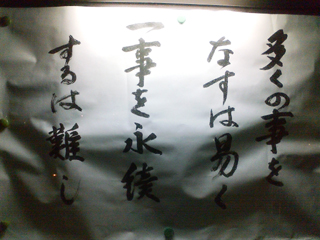 多くの事を
なすは易く
一事を永続
するは難し